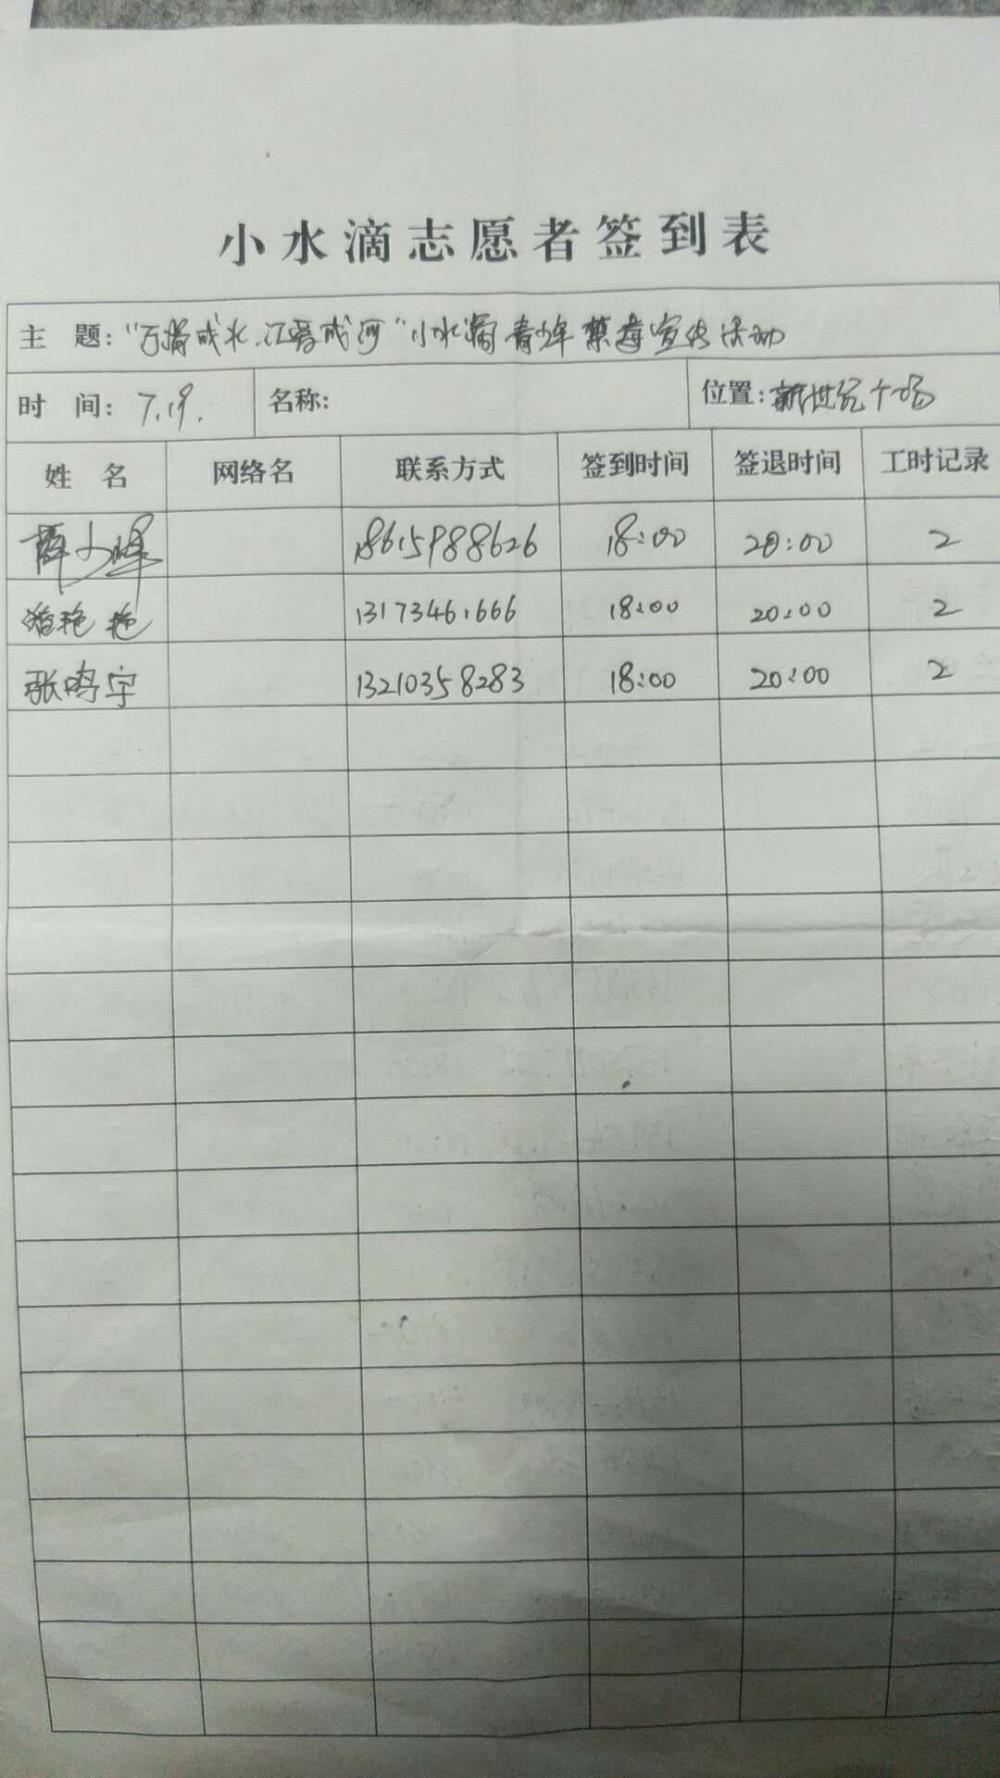 小水滴志愿者签到表
主 题:"万滴成水.江聚成河"小水滴青少年禁毒宣传活动
时 间: 7.19. 名称: 位置:新世纪广场
姓 名 网络名 联系方式 签到时间 签退时间 工时记录
薛 18615988626 18:00 20:00 2
潘艳艳 13173461666 18:00 20:00 2
张鸣宇 13210358283 18:00 20:00 2